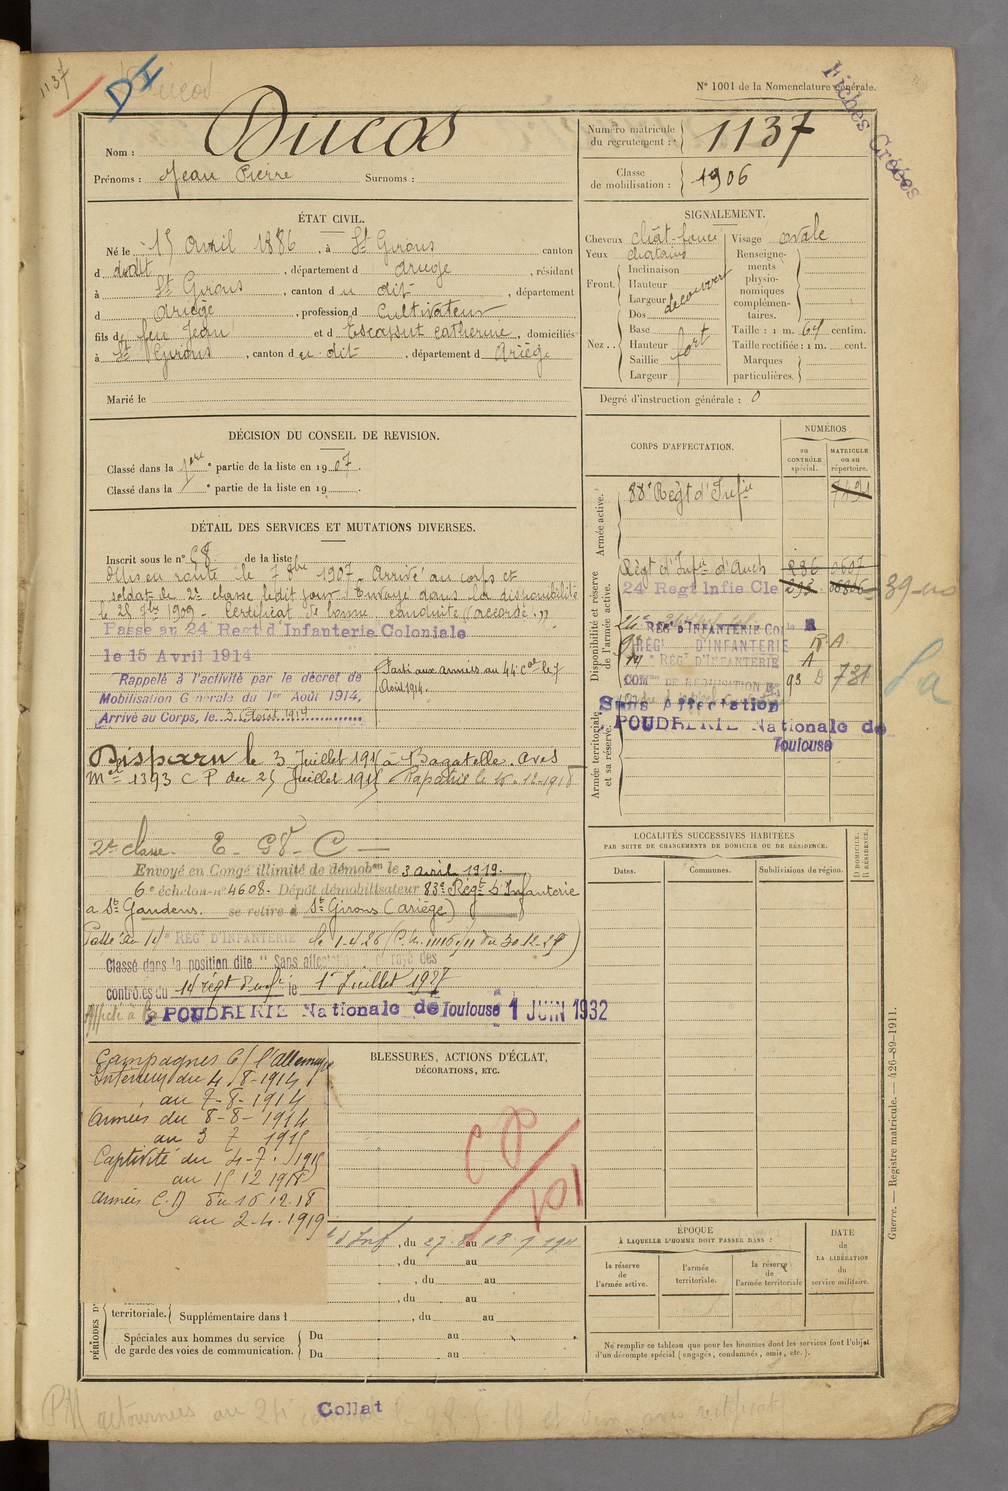 1137
DI
Ducos
N° 1001 de la Nomenclature générale.
Fiches Créées
Nom : Ducos
Prénoms : Jean Pierre Surnoms :
Numéro matricule du recrutement : 1137
Classe de mobilisation : 1906
ÉTAT CIVIL.
Né le 15 avril 1886, à St Girons canton
d dudit, département d ariege, résidant
à St Girons, canton d u dit, département
d ariège, profession d Cultivateur
fils de feu Jean et d Escaput Catherine, domiciliés
à St Girons, canton d u dit, département d Ariège
Marié le
SIGNALEMENT.
Cheveux chât-foncé Visage ovale
Yeux chatains
Front. Inclinaison Hauteur Largeur découvert
Nez . . Dos Base Hauteur Saillie Largeur fort
Renseignements physionomiques complémentaires.
Taille : 1 m. 64 centim.
Taille rectifiée : 1 m. cent.
Marques particulières.
Degré d'instruction générale : 0
DÉCISION DU CONSEIL DE REVISION.
Classé dans la 1ere partie de la liste en 1907.
Classé dans la ° partie de la liste en 19
DÉTAIL DES SERVICES ET MUTATIONS DIVERSES.
Inscrit sous le n° 68 de la liste
Mis en route le 7 8bre 1907. Arrivé au corps et
soldat de 2e classe ledit jour. Envoyé dans la disponibilité
le 28 7bre 1909. Certificat de bonne conduite "accordé".
Passé au 24 Regt d'Infanterie Coloniale
le 15 Avril 1914
Rappelé à l'activité par le décret de
Mobilisation Générale du 1er Août 1914,
Arrivé au Corps, le 3 Août 1914
Parti aux armées au 44 Cal le 7
Août 1914.
Disparu le 3 Juillet 1915 à Bagatelle. avis
Mel 1393 C P du 25 Juillet 1915 Rapatrié le 15-12-1918
2e classe.
Envoyé en Congé illimité de démobon le 3 avril 1919.
6e échelon n° 4608. Dépôt démobilisateur 83e Régt D'Infanterie
a St Gaudens. se retire à St Girons (ariège)
Passé au 14e RÉGT D'INFANTERIE
Classé dans la position dite "Sans affectation" et rayé des
contrôles du 14 régt d'infie le 1er Juillet 1927
Affecté à la POUDRERIE Nationale de Toulouse 1 JUIN 1932
CORPS D'AFFECTATION.
NUMÉROS
au CONTRÔLE spécial.
MATRICULE ou au répertoire.
Armée active.
88e Regt d'Infie
Disponibilité et réserve de l'armée active.
Régt d'Infie d'Auch
24 Regt Infie Cle
RÉGt D'INFANTERIE Col
RÉGt D'INFANTERIE R A
14e RÉGt D'INFANTERIE A
93 D 731
Sans Affectation
POUDRERIE Nationale de
Toulouse
Armée territoriale et sa réserve.
LOCALITÉS SUCCESSIVES HABITÉES
PAR SUITE DE CHANGEMENTS DE DOMICILE OU DE RÉSIDENCE.
Dates. Communes. Subdivisions de région. D DOMICILE. R RÉSIDENCE.
Campagnes C/ l'allemagne
Intérieur du 4-8-1914
au 7-8-1914
Armées du 8-8-1914
au 3 7 1915
Captivité du 4-7-1915
au 15 12 1918
Armées C. D du 16 12 18
au 2-4-1919
BLESSURES, ACTIONS D'ÉCLAT,
DÉCORATIONS, ETC.
, du au
, du au
, du au
, du au
PÉRIODES D'
territoriale. Supplémentaire dans l , du au
Spéciales aux hommes du service de garde des voies de communication. Du au
Du au
ÉPOQUE
À LAQUELLE L'HOMME DOIT PASSER DANS :
la réserve de l'armée active.
l'armée territoriale.
la réserve de l'armée territoriale
DATE de LA LIBÉRATION du service militaire.
Ne remplir ce tableau que pour les hommes dont les services font l'objet
d'un décompte spécial (engagés, condamnés, omis, etc.).
Guerre. — Registre matricule. — 426-89-1911.
Collat